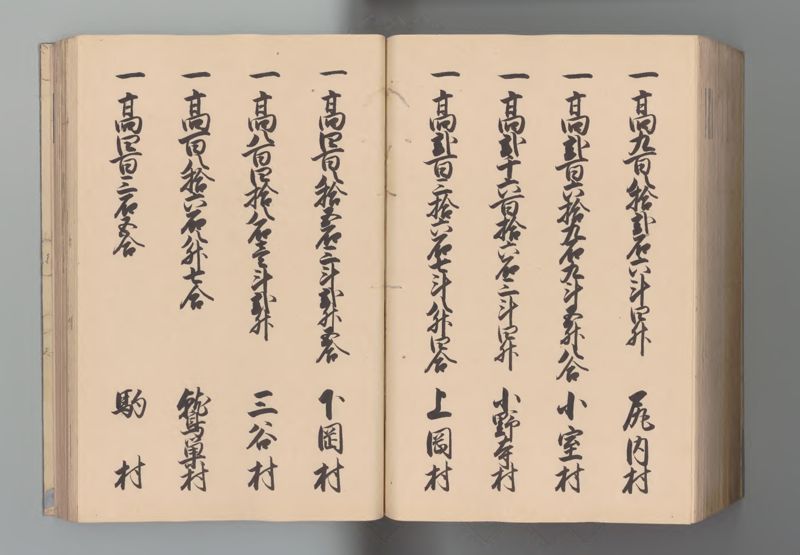 一高九百八拾弐石六斗四升 尻内村
一高弐百六拾五石九斗五升八合 小室村
一高弐千六百拾六石三斗四升 小野寺村
一高弐百三拾六石七斗八升四合 上岡村
一高四百八拾五石三斗弐升五合 下岡村
一高八百四拾八石壱斗弐升 三谷村
一高百八拾六石八升七合 鷲巣村
一高四百三石五合 駒村